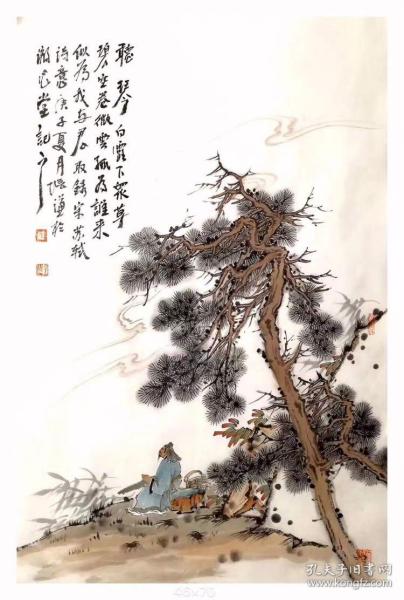 聽琴白露下衆草
碧空卷微雲孤為誰來
似為我与君取錄宋蘇軾
詩意庚子夏月謙於
堂記
46x70
孔夫子旧书网
www.kongfz.com